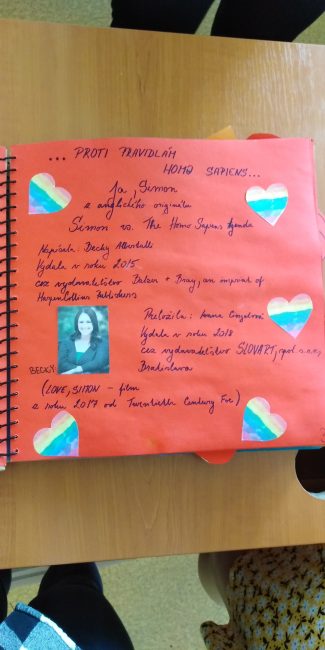 ... PROTI PRAVIDLÁM
HOMO SAPIENS...
Ja, Simon
z anglického originálu
Simon vs. The Homo Sapiens Agenda
Napísala: Becky Albertalli
Vydala v roku 2015
cez vydavateľstvo Balzer + Bray, an imprint of
HarperCollins Publishers
Preložila:
Vydala v roku 2018
cez vydavateľstvo SLOVART, spol. s.r.o,
Bratislava
BECKY:
(LOVE, SIMON - film
z roku 2017 od Twentieth Century Fox)